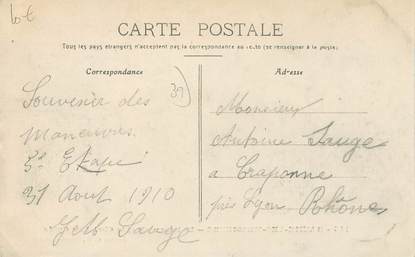 10 €
CARTE POSTALE
Tous les pays étrangers n'acceptent pas la correspondance au recto (se renseigner à la poste)
Correspondance
Adresse
39
Souvenir des
Manœuvres
3e Etape
31 Aout 1910
Sauge
Monsieur
Antoine Sauge
a Craponne
près Lyon Rhône